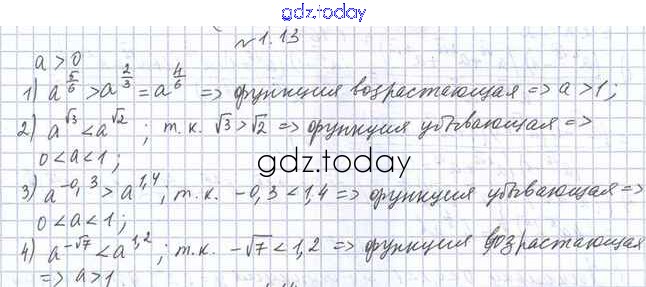 gdz.today
№1.13
a > 0
1) a^(5/6) > a^(2/3) = a^(4/6) => функция возрастающая => a > 1;
2) a^√3 < a^√2; т.к. √3 > √2 => функция убывающая =>
0 < a < 1;
gdz.today
3) a^(-0,3) > a^(1,4); т.к. -0,3 < 1,4 => функция убывающая =>
0 < a < 1;
4) a^(-√7) < a^(1,2); т.к. -√7 < 1,2 => функция возрастающая
=> a > 1